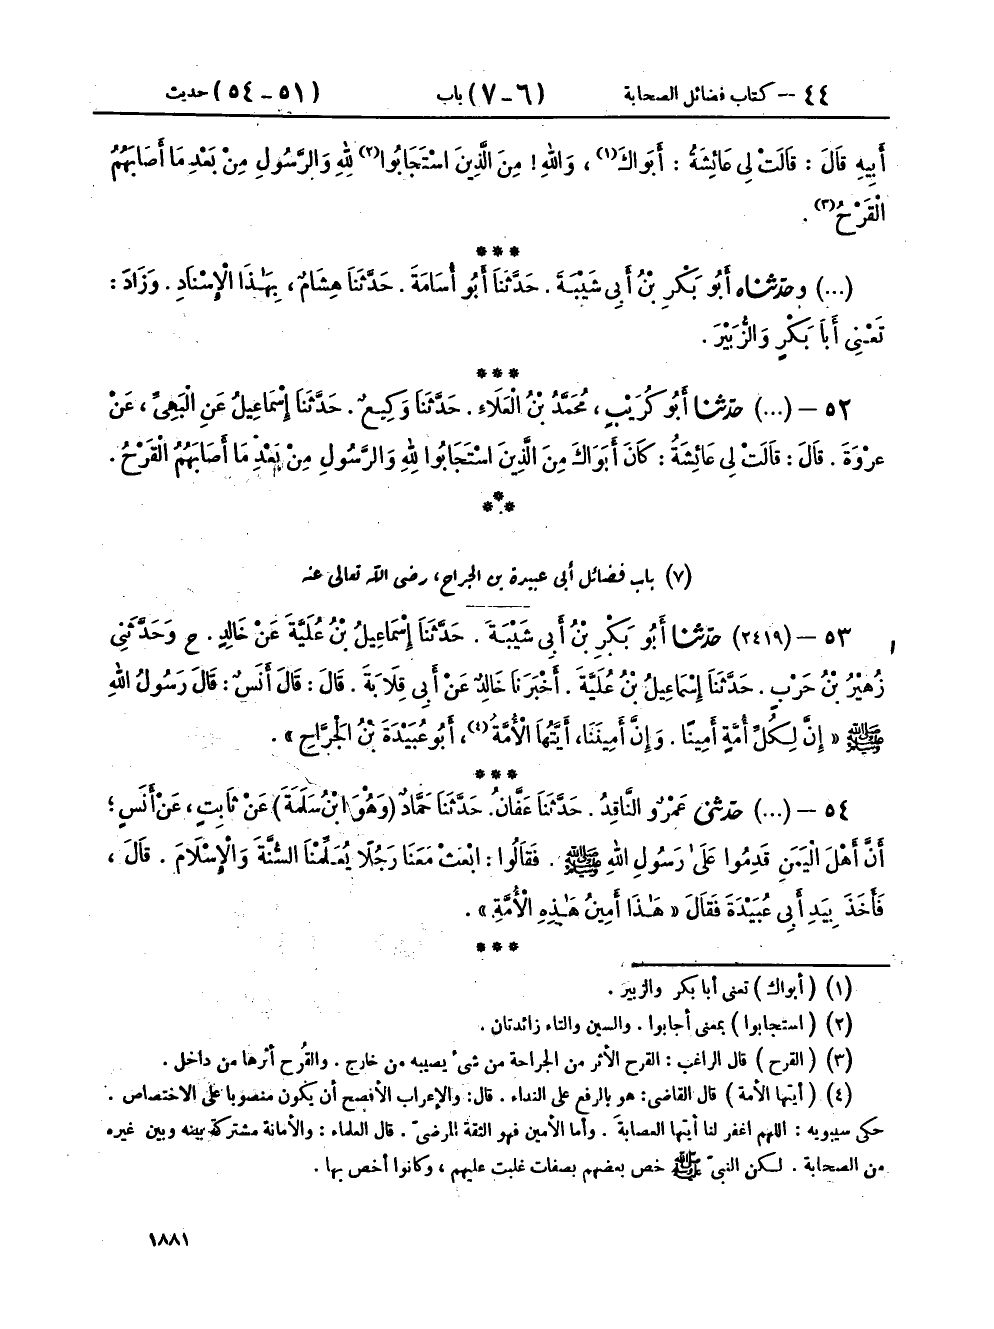 ٤٤ – كتاب فضائل الصحابة (٦-٧) باب (٥١-٥٤) حديث
أَبِيهِ قَالَ : قَالَتْ لِى عَائِشَةُ : أَبَوَاكَ(١) ، وَاللهِ ! مِنَ الَّذِينَ اسْتَجَابُوا(٢) لِلهِ وَالرَّسُولِ مِنْ بَعْدِ مَا أَصَابَهُمُ
الْقَرْحُ(٣) .
***
(...) وحدثناه أَبُو بَكْرِ بْنُ أَبِى شَيْبَةَ . حَدَّثَنَا أَبُو أُسَامَةَ . حَدَّثَنَا هِشَامٌ ، بِهَـٰذَا الْإِسْنَادِ . وَزَادَ :
تَعْنِى أَبَا بَكْرٍ وَالزُّبَيْرَ .
***
٥٢ – (...) حدثنا أَبُو كُرَيْبٍ ، مُحَمَّدُ بْنُ الْعَلَاءِ . حَدَّثَنَا وَكِيعٌ . حَدَّثَنَا إِسْمَاعِيلُ عَنِ الْبَهِىِّ ، عَنْ
عُرْوَةَ . قَالَ : قَالَتْ لِى عَائِشَةُ : كَانَ أَبَوَاكَ مِنَ الَّذِينَ اسْتَجَابُوا لِلهِ وَالرَّسُولِ مِنْ بَعْدِ مَا أَصَابَهُمُ الْقَرْحُ .
***
(٧) باب فضائل أبى عبيدة بن الجراح ، رضى الله تعالى عنه
٥٣ – (٢٤١٩) حدثنا أَبُو بَكْرِ بْنُ أَبِى شَيْبَةَ . حَدَّثَنَا إِسْمَاعِيلُ بْنُ عُلَيَّةَ عَنْ خَالِدٍ . ح وَحَدَّثَنِى
زُهَيْرُ بْنُ حَرْبٍ . حَدَّثَنَا إِسْمَاعِيلُ بْنُ عُلَيَّةَ . أَخْبَرَنَا خَالِدٌ عَنْ أَبِى قِلَابَةَ . قَالَ : قَالَ أَنَسٌ : قَالَ رَسُولُ اللهِ
ﷺ « إِنَّ لِكُلِّ أُمَّةٍ أَمِينًا . وَإِنَّ أَمِينَنَا ، أَيَّتُهَا الْأُمَّةُ(٤) ، أَبُو عُبَيْدَةَ بْنُ الْجَرَّاحِ » .
***
٥٤ – (...) حدثنى عَمْرٌو النَّاقِدُ . حَدَّثَنَا عَفَّانُ . حَدَّثَنَا حَمَّادٌ (وَهُوَ ابْنُ سَلَمَةَ) عَنْ ثَابِتٍ ، عَنْ أَنَسٍ ؛
أَنَّ أَهْلَ الْيَمَنِ قَدِمُوا عَلَىٰ رَسُولِ اللهِ ﷺ . فَقَالُوا : ابْعَثْ مَعَنَا رَجُلًا يُعَلِّمْنَا السُّنَّةَ وَالْإِسْلَامَ . قَالَ ،
فَأَخَذَ بِيَدِ أَبِى عُبَيْدَةَ فَقَالَ « هَـٰذَا أَمِينُ هَـٰذِهِ الْأُمَّةِ » .
***
(١) (أبواك) تعنى أبا بكر والزبير .
(٢) (استجابوا) بمعنى أجابوا . والسين والتاء زائدتان .
(٣) (القرح) قال الراغب : القرح الأثر من الجراحة من شىء يصيبه من خارج . والقُرح أثرها من داخل .
(٤) (أيتها الأمة) قال القاضى: هو بالرفع على النداء . قال: والإعراب الأفصح أن يكون منصوبا على الاختصاص .
حكى سيبويه : اللهم اغفر لنا أيتها العصابةَ . وأما الأمين فهو الثقة المرضىّ . قال العلماء : والأمانة مشتركة بينه وبين غيره
من الصحابة . لكن النبىّ ﷺ خص بعضهم بصفات غلبت عليهم ، وكانوا أخص بها .
١٨٨١